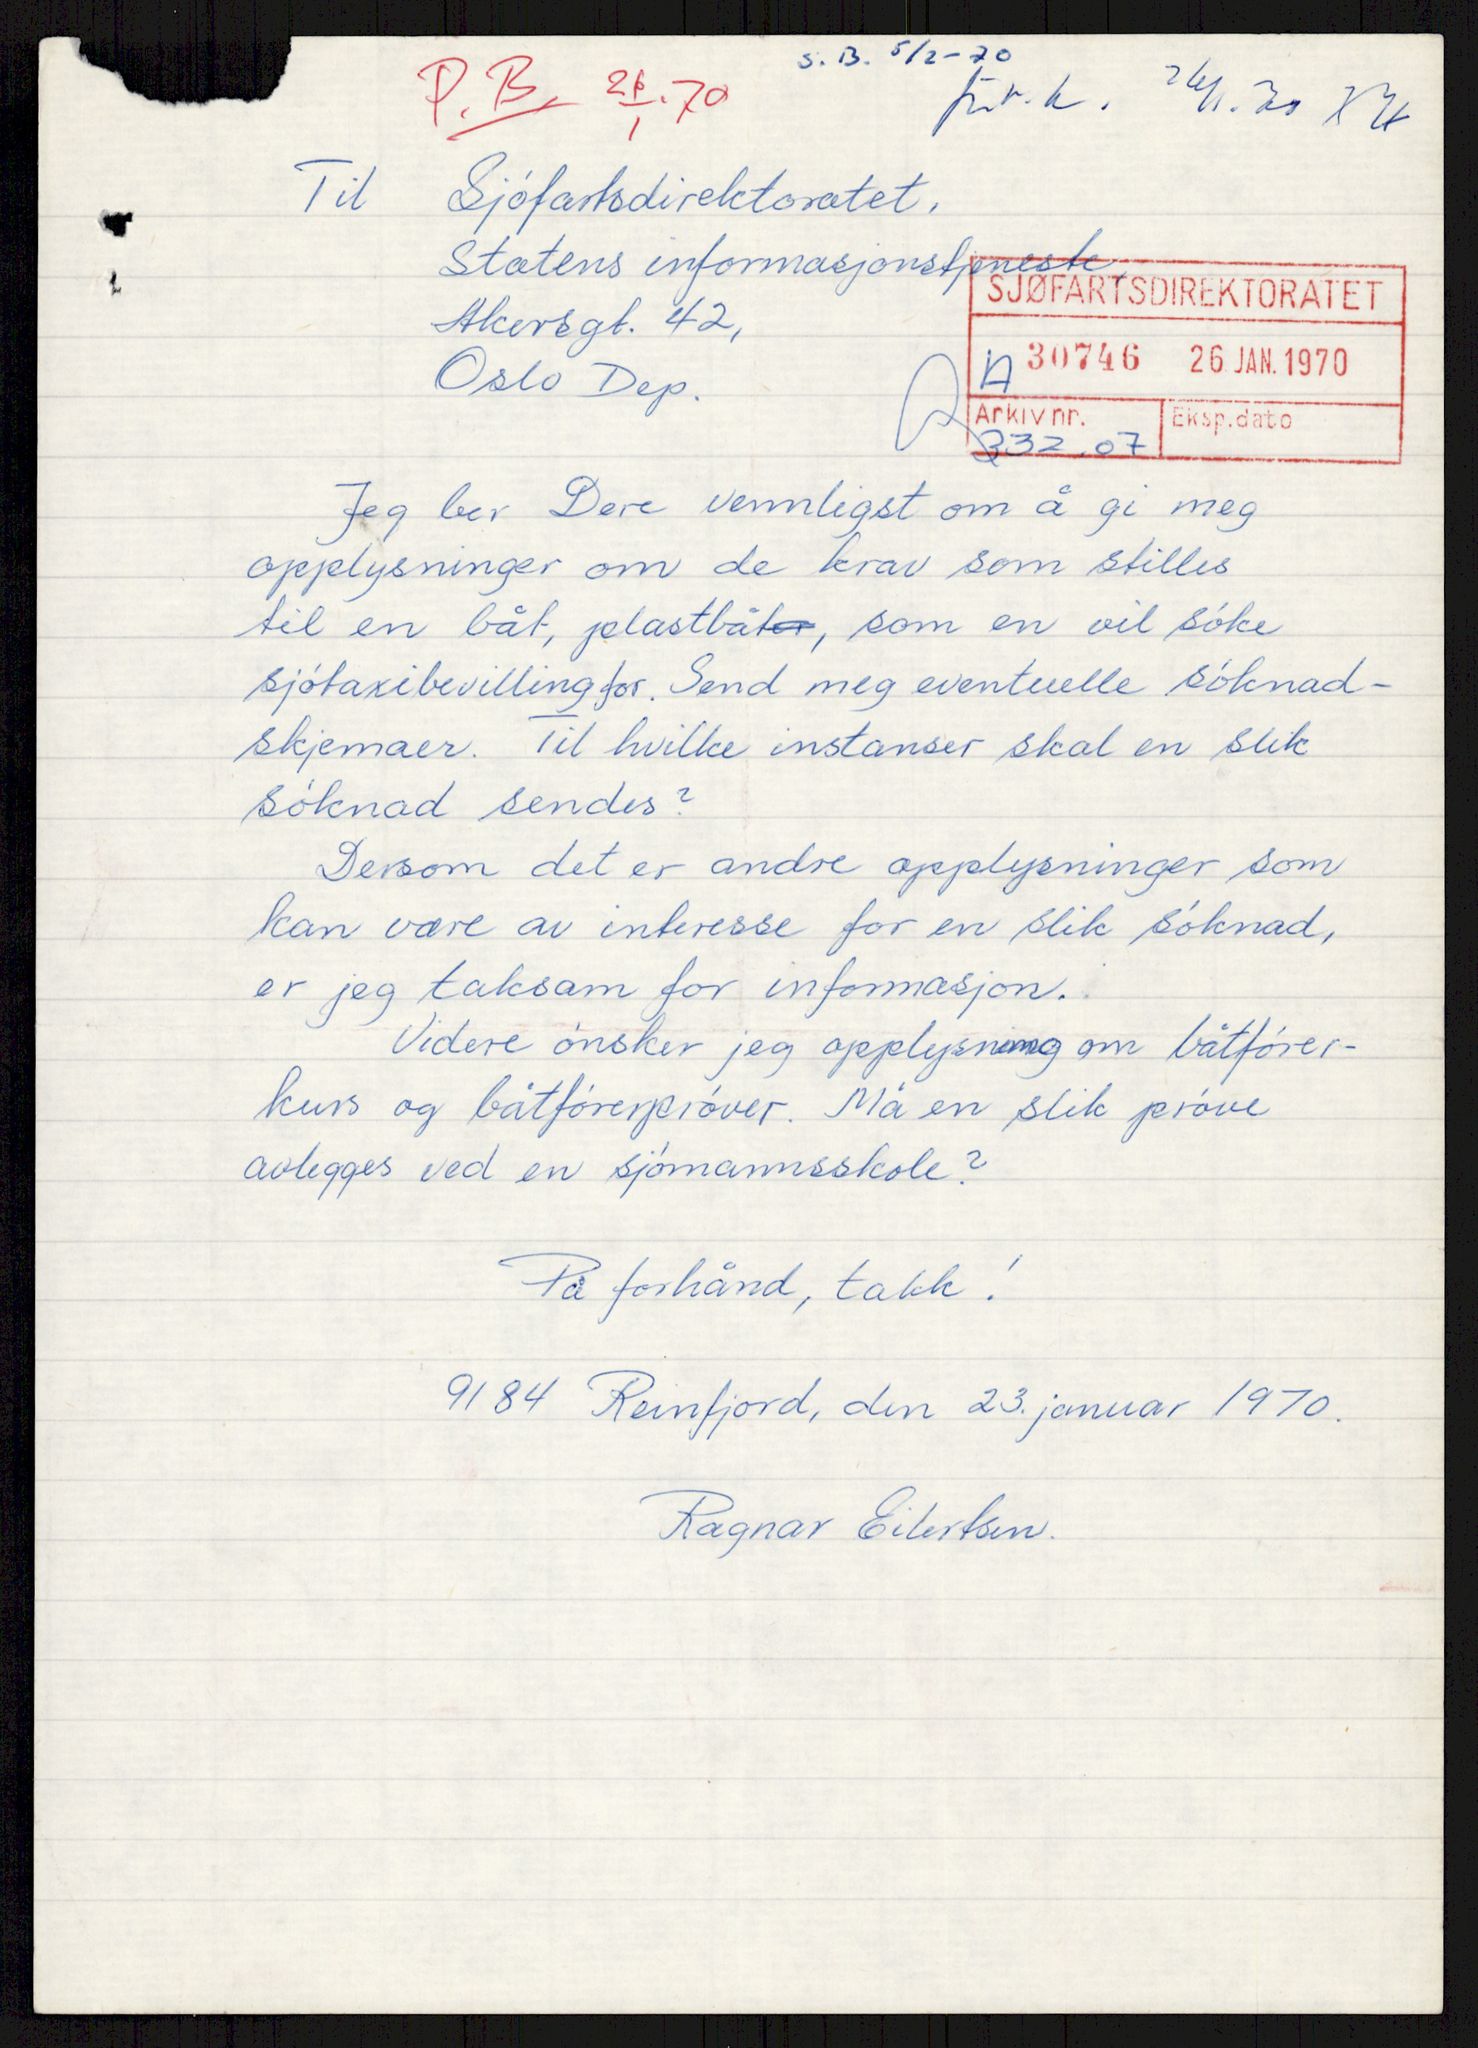 S.B. 5/2-70
P.B. 26/1.70
Til Sjófartsdirektoratet,
Statens informasjonstjeneste,
Akersgt. 42,
Oslo Dep.
SJØFARTSDIREKTORATET
A 30746 26 JAN. 1970
Arkivnr. Eksp.dato
332.07
Jeg ber Dere vennligst om å gi meg
opplysninger om de krav som stilles
til en båt, plastbåter, som en vil sóke
sjótaxibevilling for. Send meg eventuelle sóknad-
skjemaer. Til hvilke instanser skal en slik
sóknad sendes?
Dersom det er andre opplysninger som
kan være av interesse for en slik sóknad,
er jeg taksam for informasjon.
Videre ónsker jeg opplysning om båtfórer-
kurs og båtfórerpróver. Må en slik próve
avlegges ved en sjómannsskole?
På forhånd, takk!
9184 Reinfjord, den 23. januar 1970.
Ragnar Eilertsen.